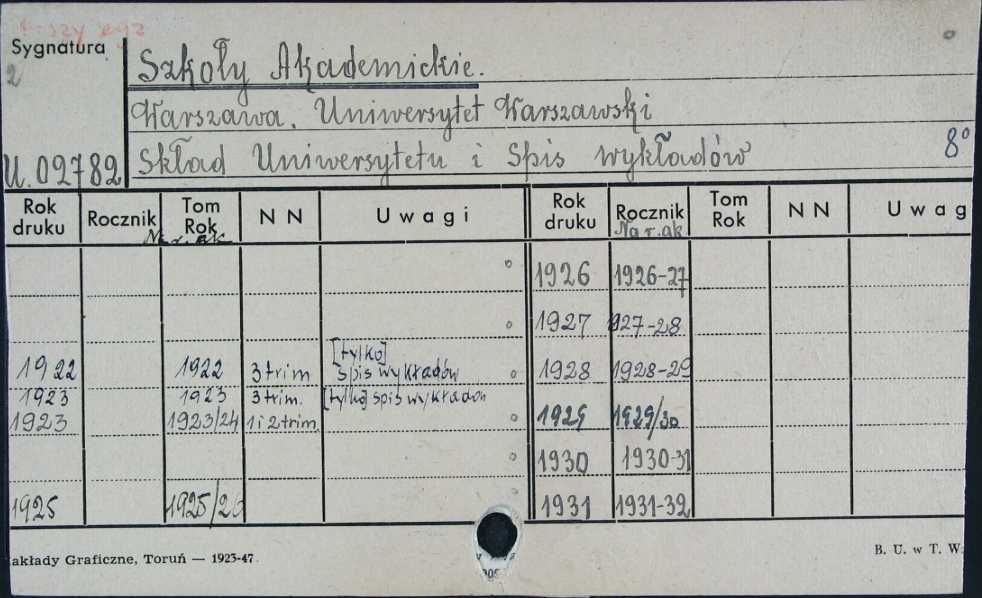 1-szy egz
Sygnatura
2
U. 02782
Szkoły Akademickie.
Warszawa. Uniwersytet Warszawski
Skład Uniwersytetu i Spis wykładów 8°
Rok druku Rocznik Tom Rok NN Uwagi Rok druku Rocznik Tom Rok NN Uwag
Na r. ak Na r. ak
1926 1926-27
1927 1927-28
[tylko]
1922 1922 3 trim spis wykładów 1928 1928-29
1923 1923 3 trim. [tylko] spis wykładów
1923 1923/24 1 i 2 trim. 1929 1929/30
1930 1930-31
1925 1925/26 1931 1931-32
akłady Graficzne, Toruń — 1923-47.
B. U. w T. W.